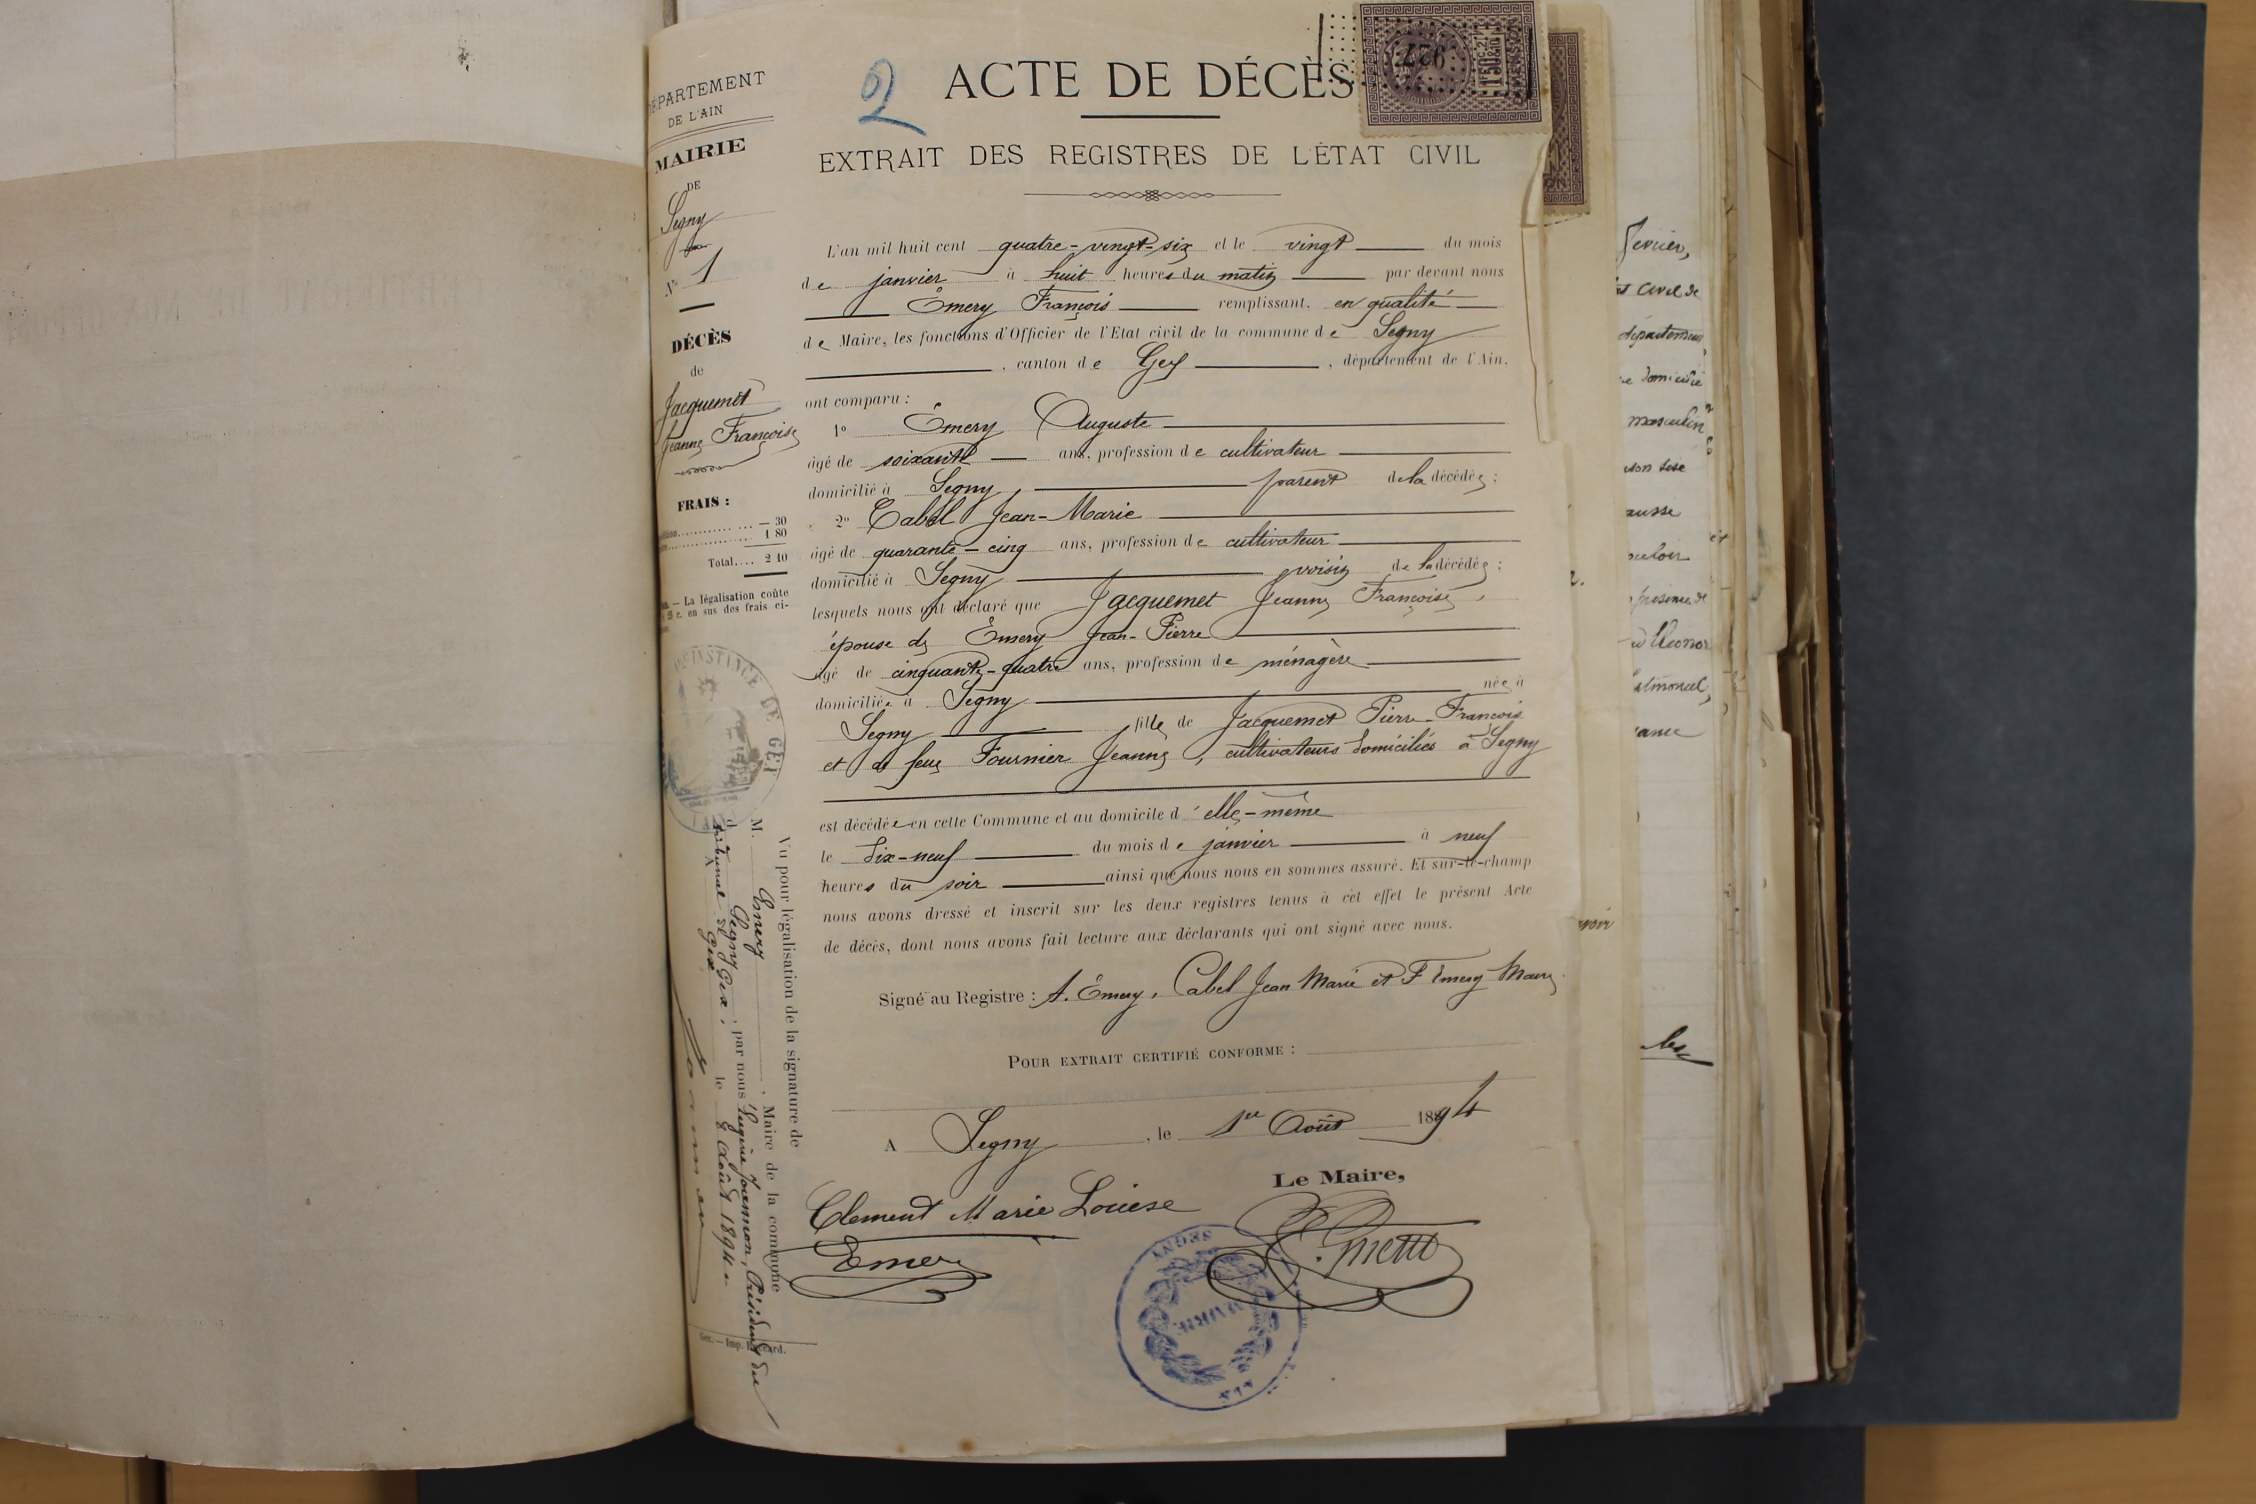 DÉPARTEMENT
DE L'AIN
MAIRIE
DE
Segny
N° 1
DÉCÈS
de
Jacquemet
Jeanne Françoise
FRAIS :
— 30
1 80
Total.... 2 10
— La légalisation coûte
en sus des frais ci-
2
ACTE DE DÉCÈS
EXTRAIT DES REGISTRES DE L'ÉTAT CIVIL
L'an mil huit cent quatre-vingt-six et le vingt du mois
de janvier à huit heures du matin par devant nous
Émery François remplissant, en qualité
de Maire, les fonctions d'Officier de l'Etat civil de la commune de Segny
, canton de Gex , département de l'Ain,
ont comparu :
1° Émery Auguste
âgé de soixante ans, profession de cultivateur
domicilié à Segny, parent de la décédée ;
2° Cabel Jean-Marie
âgé de quarante-cinq ans, profession de cultivateur
domicilié à Segny voisin de la décédée ;
lesquels nous ont déclaré que Jacquemet Jeanne Françoise,
épouse de Émery Jean-Pierre
âgé de cinquante-quatre ans, profession de ménagère
domiciliée à Segny née à
Segny fille de Jacquemet Pierre-François
et de feue Fournier Jeanne, cultivateurs domiciliés à Segny
est décédée en cette Commune et au domicile d'elle-même
le dix-neuf du mois de janvier à neuf
heures du soir ainsi que nous nous en sommes assuré. Et sur-le-champ
nous avons dressé et inscrit sur les deux registres tenus à cet effet le présent Acte
de décès, dont nous avons fait lecture aux déclarants qui ont signé avec nous.
Signé au Registre : A. Émery, Cabel Jean Marie et F Emery Maire
POUR EXTRAIT CERTIFIÉ CONFORME :
A Segny, le 1er Août 1894
Le Maire,
Clement Marie Louise
Emery
SEGNY
MAIRIE
AIN
Vu pour légalisation de la signature de
M. Emery, Maire de la commune
d Segny, par nous Eugène Joannon, Président du
tribunal de Gex,
A Gex le 2 Août 1894.
INSTANCE DE GEX
927
1F50c
DIMENSION
février,
civil de
département
domicilié
masculin
présence de
Léonor